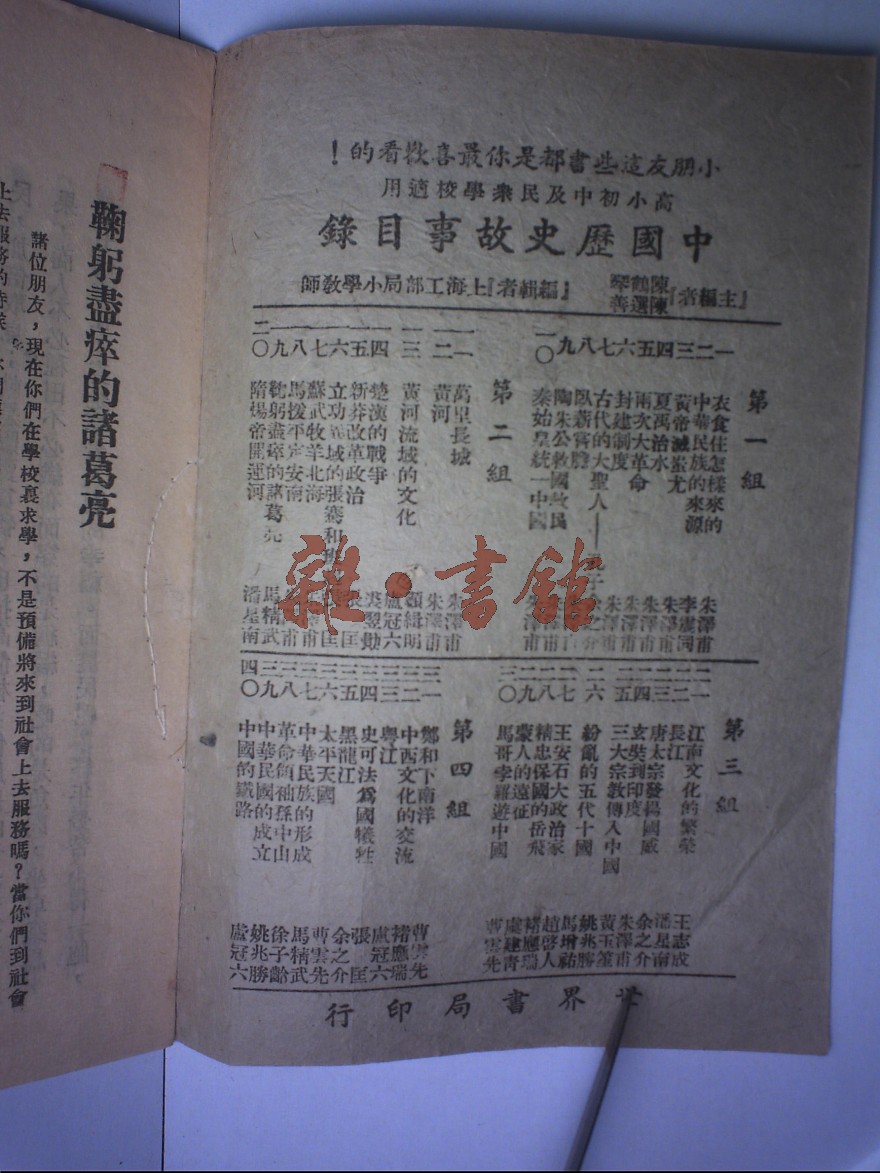 小朋友這些書都是你最喜歡看的！
高小初中及民衆學校適用
中國歷史故事目錄
『主編者』
陳鶴琴
陳選善
『編輯者』上海工部局小學教師
第一組
一 衣食住怎樣來的 朱澤甫
二 中華民族的來源 李震同
三 黃帝滅蚩尤 朱澤甫
四 夏禹治水 朱澤甫
五 兩次大革命 朱澤甫
六 封建制度 朱澤甫
七 古代的大聖人——孔子
八 臥薪嘗膽
九 陶朱公救國救民
一〇 秦始皇統一中國 朱澤甫
第二組
一一 萬里長城 朱澤甫
一二 黃河 朱澤甫
一三 黃河流域的文化 顧緝明
一四 楚漢的戰爭 盧冠六
一五 新莽改革政治 裘翌勛
一六 立功異域的張騫和班
一七 蘇武牧羊北海
一八 馬援平定安南
一九 鞠躬盡瘁的諸葛亮 馬精武
二〇 隋煬帝開運河 潘星南
第三組
二一 江南文化的繁榮 王志成
二二 長江 潘星南
二三 唐太宗發揚國威 余之介
二四 玄奘到印度 朱澤甫
二五 三大宗教傳入中國 黃玉笙
二六 紛亂的五代十國 姚兆勝
二七 王安石大政治家 馬增祐
二八 精忠保國的岳飛 趙啓人
二九 蒙人的遠征 褚應瑞
三〇 馬哥孛羅遊中國 處建青
曹雲先
第四組
三一 鄭和下南洋 曹雲先
三二 中西文化的交流 褚應瑞
三三 粵江 盧冠六
三四 史可法爲國犧牲 張匡
三五 黑龍江 余之介
三六 太平天國 曹雲先
三七 中華民族的形成 馬精武
三八 革命領袖孫中山 徐子齡
三九 中華民國的成立 姚兆勝
四〇 中國的鐵路 盧冠六
世界書局印行
雜·書館
鞠躬盡瘁的諸葛亮
諸位朋友，現在你們在學校裏求學，不是預備將來到社會上去服務嗎？當你們到社會
上去服務的時候